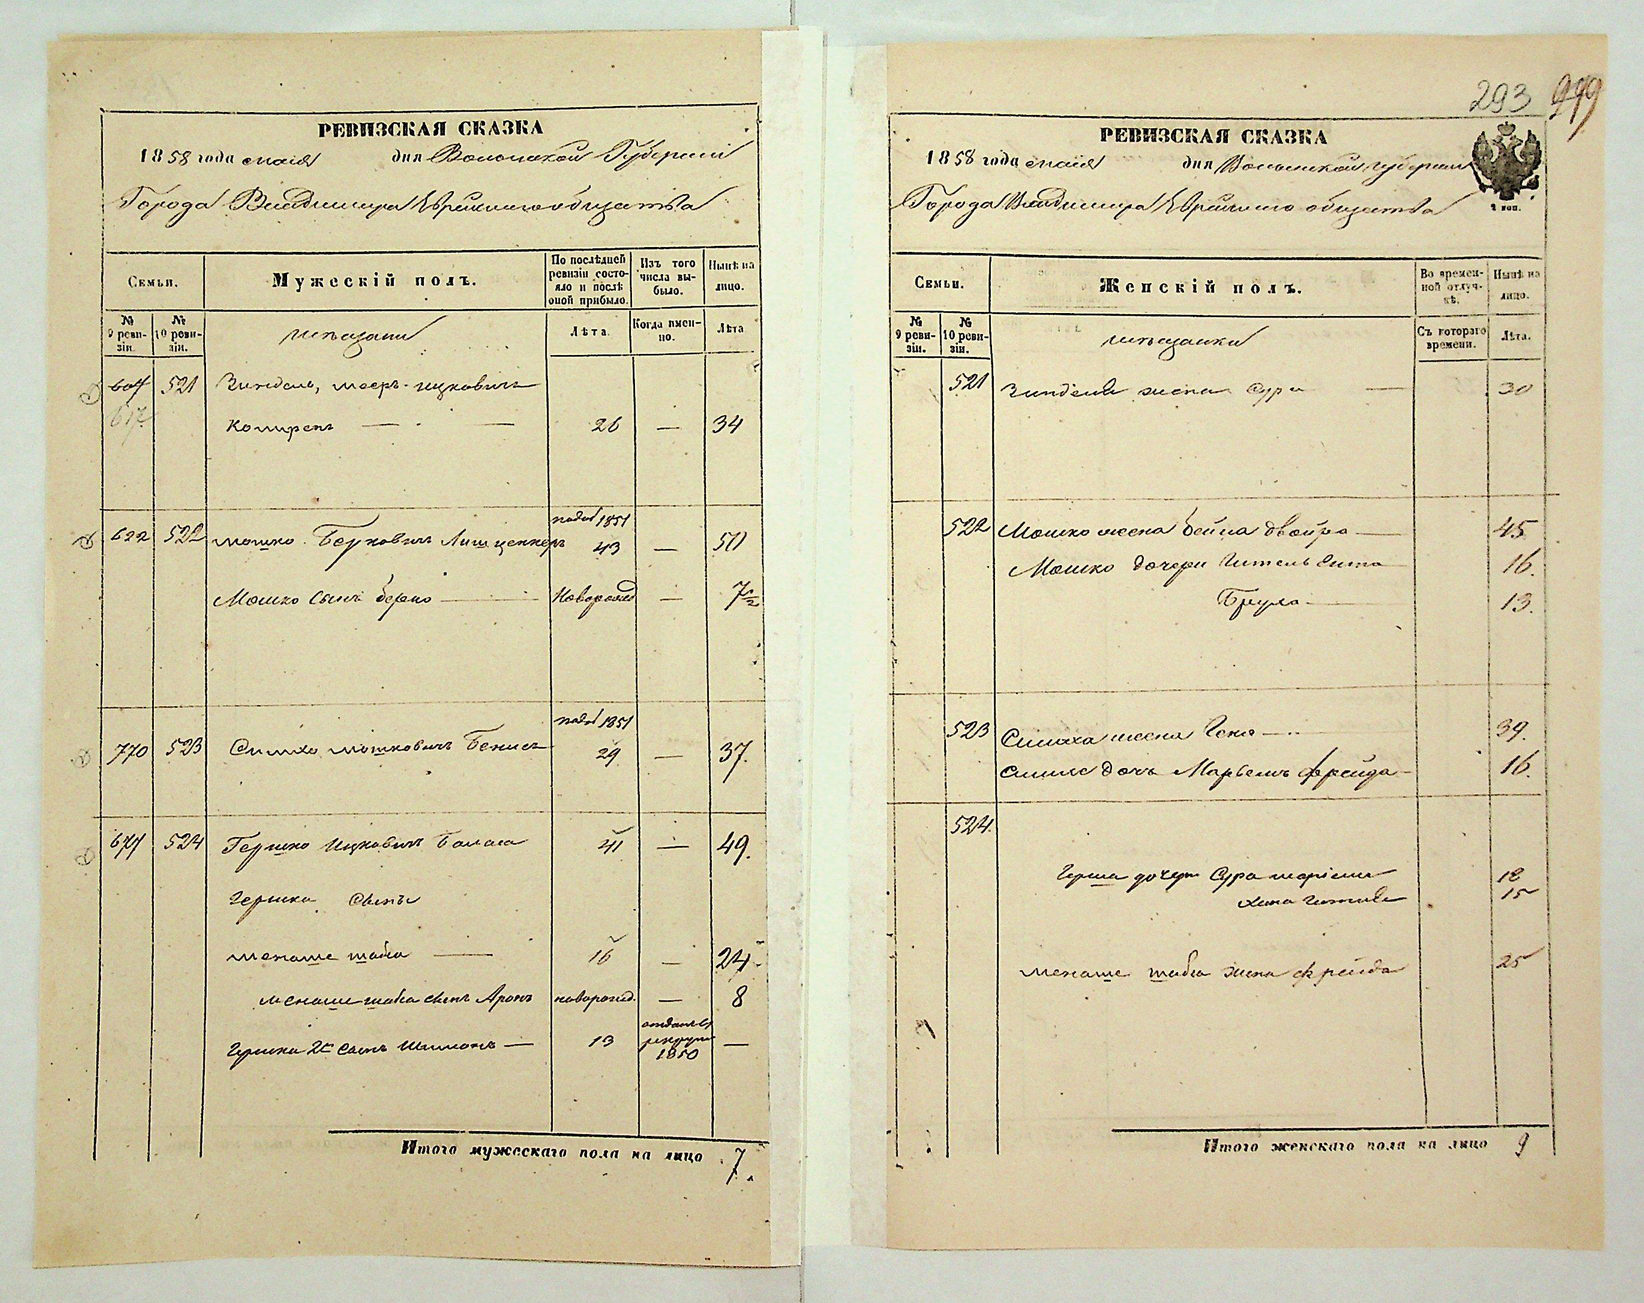 РЕВИЗСКАЯ СКАЗКА
1858 года маія дня Волынской Губерніи
Города Владимира Еврейского общества
Семьи.
Мужескій полъ.
По послѣдней ревизіи состояло и послѣ оной прибыло.
Изъ того числа выбыло.
Нынѣ на лицо.
№ 9 ревизіи.
№ 10 ревизіи.
мѣщани
Лѣта.
Когда именно.
Лѣта
617
521
Зиндель, мееръ-ицковичъ
26 — 34
622 522 мошко Берковичъ
1851
43 — 50
Мошко сынъ берко — Новорожд — 7 1/2
1851
770 523 Симхо мошковичъ
29 — 37.
677 524 Гершко Ицковичъ
41 — 49.
Гершка сынъ
менаше шабса — 16 — 24
менаше шабса сынъ Аронъ новорожд. — 8
Гершки 2й сынъ — 13
рекруты 1850 —
Итого мужескаго пола на лицо 7.
293
РЕВИЗСКАЯ СКАЗКА
1858 года маія дня Волынской губерніи
Города Владимира Еврейского общества
2 коп.
Семьи.
Женскій полъ.
Во временной отлучкѣ.
Нынѣ на лицо.
№ 9 ревизіи.
№ 10 ревизіи.
мѣщанки
Съ котораго времени.
Лѣта.
521 Зинделя жена Сура — 30
522 Мошко жена бейла двойра — 45
Мошко дочери 16.
Бруха — 13.
523 Симаха жена — 39.
дочь фрейда — 16.
524.
Герша дочери Сура маріем 18
15
менаше шабса жена фрейда 25
Итого женскаго пола на лицо 9